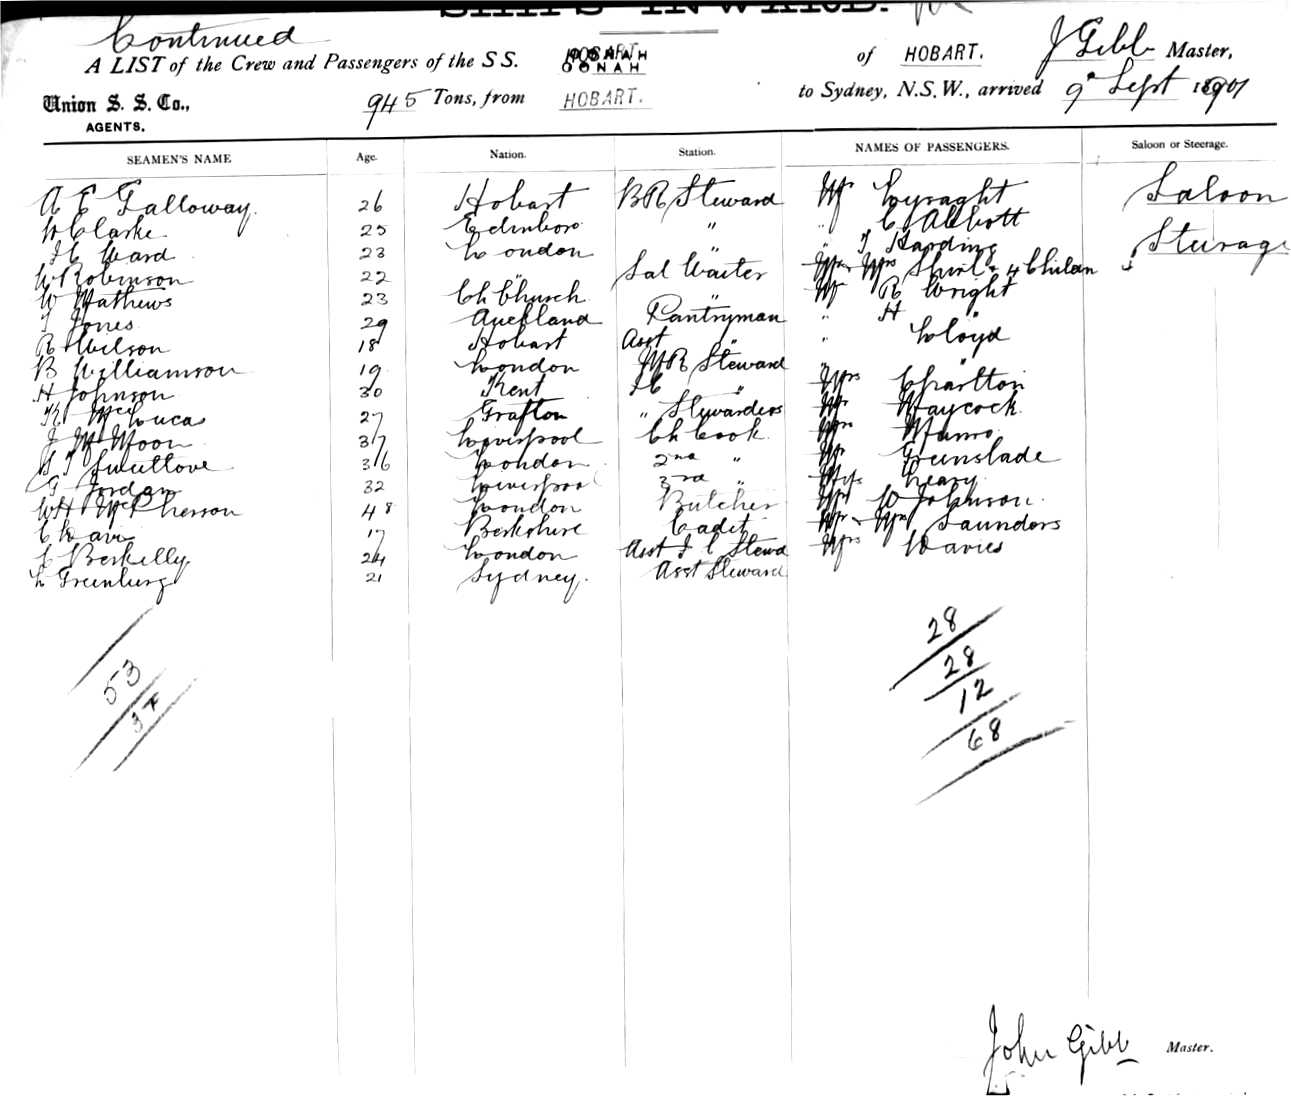 SHIPS INWARD.
Continued
A LIST of the Crew and Passengers of the S S. OONAH of HOBART. J Gibb Master,
Union S. S. Co., AGENTS. 945 Tons, from HOBART. to Sydney, N.S.W., arrived 9 Sept 1901
SEAMEN'S NAME Age. Nation. Station. NAMES OF PASSENGERS. Saloon or Steerage.
A E Galloway 26 Hobart BR Steward Mr Lysaght Saloon
W Clarke 25 Edinboro " " C Abbott
J C Ward 23 London " " T Harding Steerage
W Robinson 22 " Sal Waiter Mr & Mrs + 4 Children "
W Mathews 23 Ch Church " Mr R Wright
T Jones 29 Auckland Pantryman " H "
R Wilson 18 Hobart Asst " " Lloyd
B Williamson 19 London M R Steward "
H Johnson 30 Kent F C " Mrs Charlton
K McLucas 27 Grafton " Stewardess Mr Haycock
J McMoon 37 Liverpool Ch Cook Mr Munro
G T Sweetlove 36 London 2nd " Mr Greenslade
G Jordan 32 Liverpool 3rd " Leary
W H McPherson 48 London Butcher Mr W Johnson
C Davis 17 Berkshire Cadet Mr & Mrs Saunders
J Berkelly 24 London Asst F C Stewd Mrs Davies
L Greenburg 21 Sydney. Asst Steward
28
28
53
12
37
68
John Gibb Master.